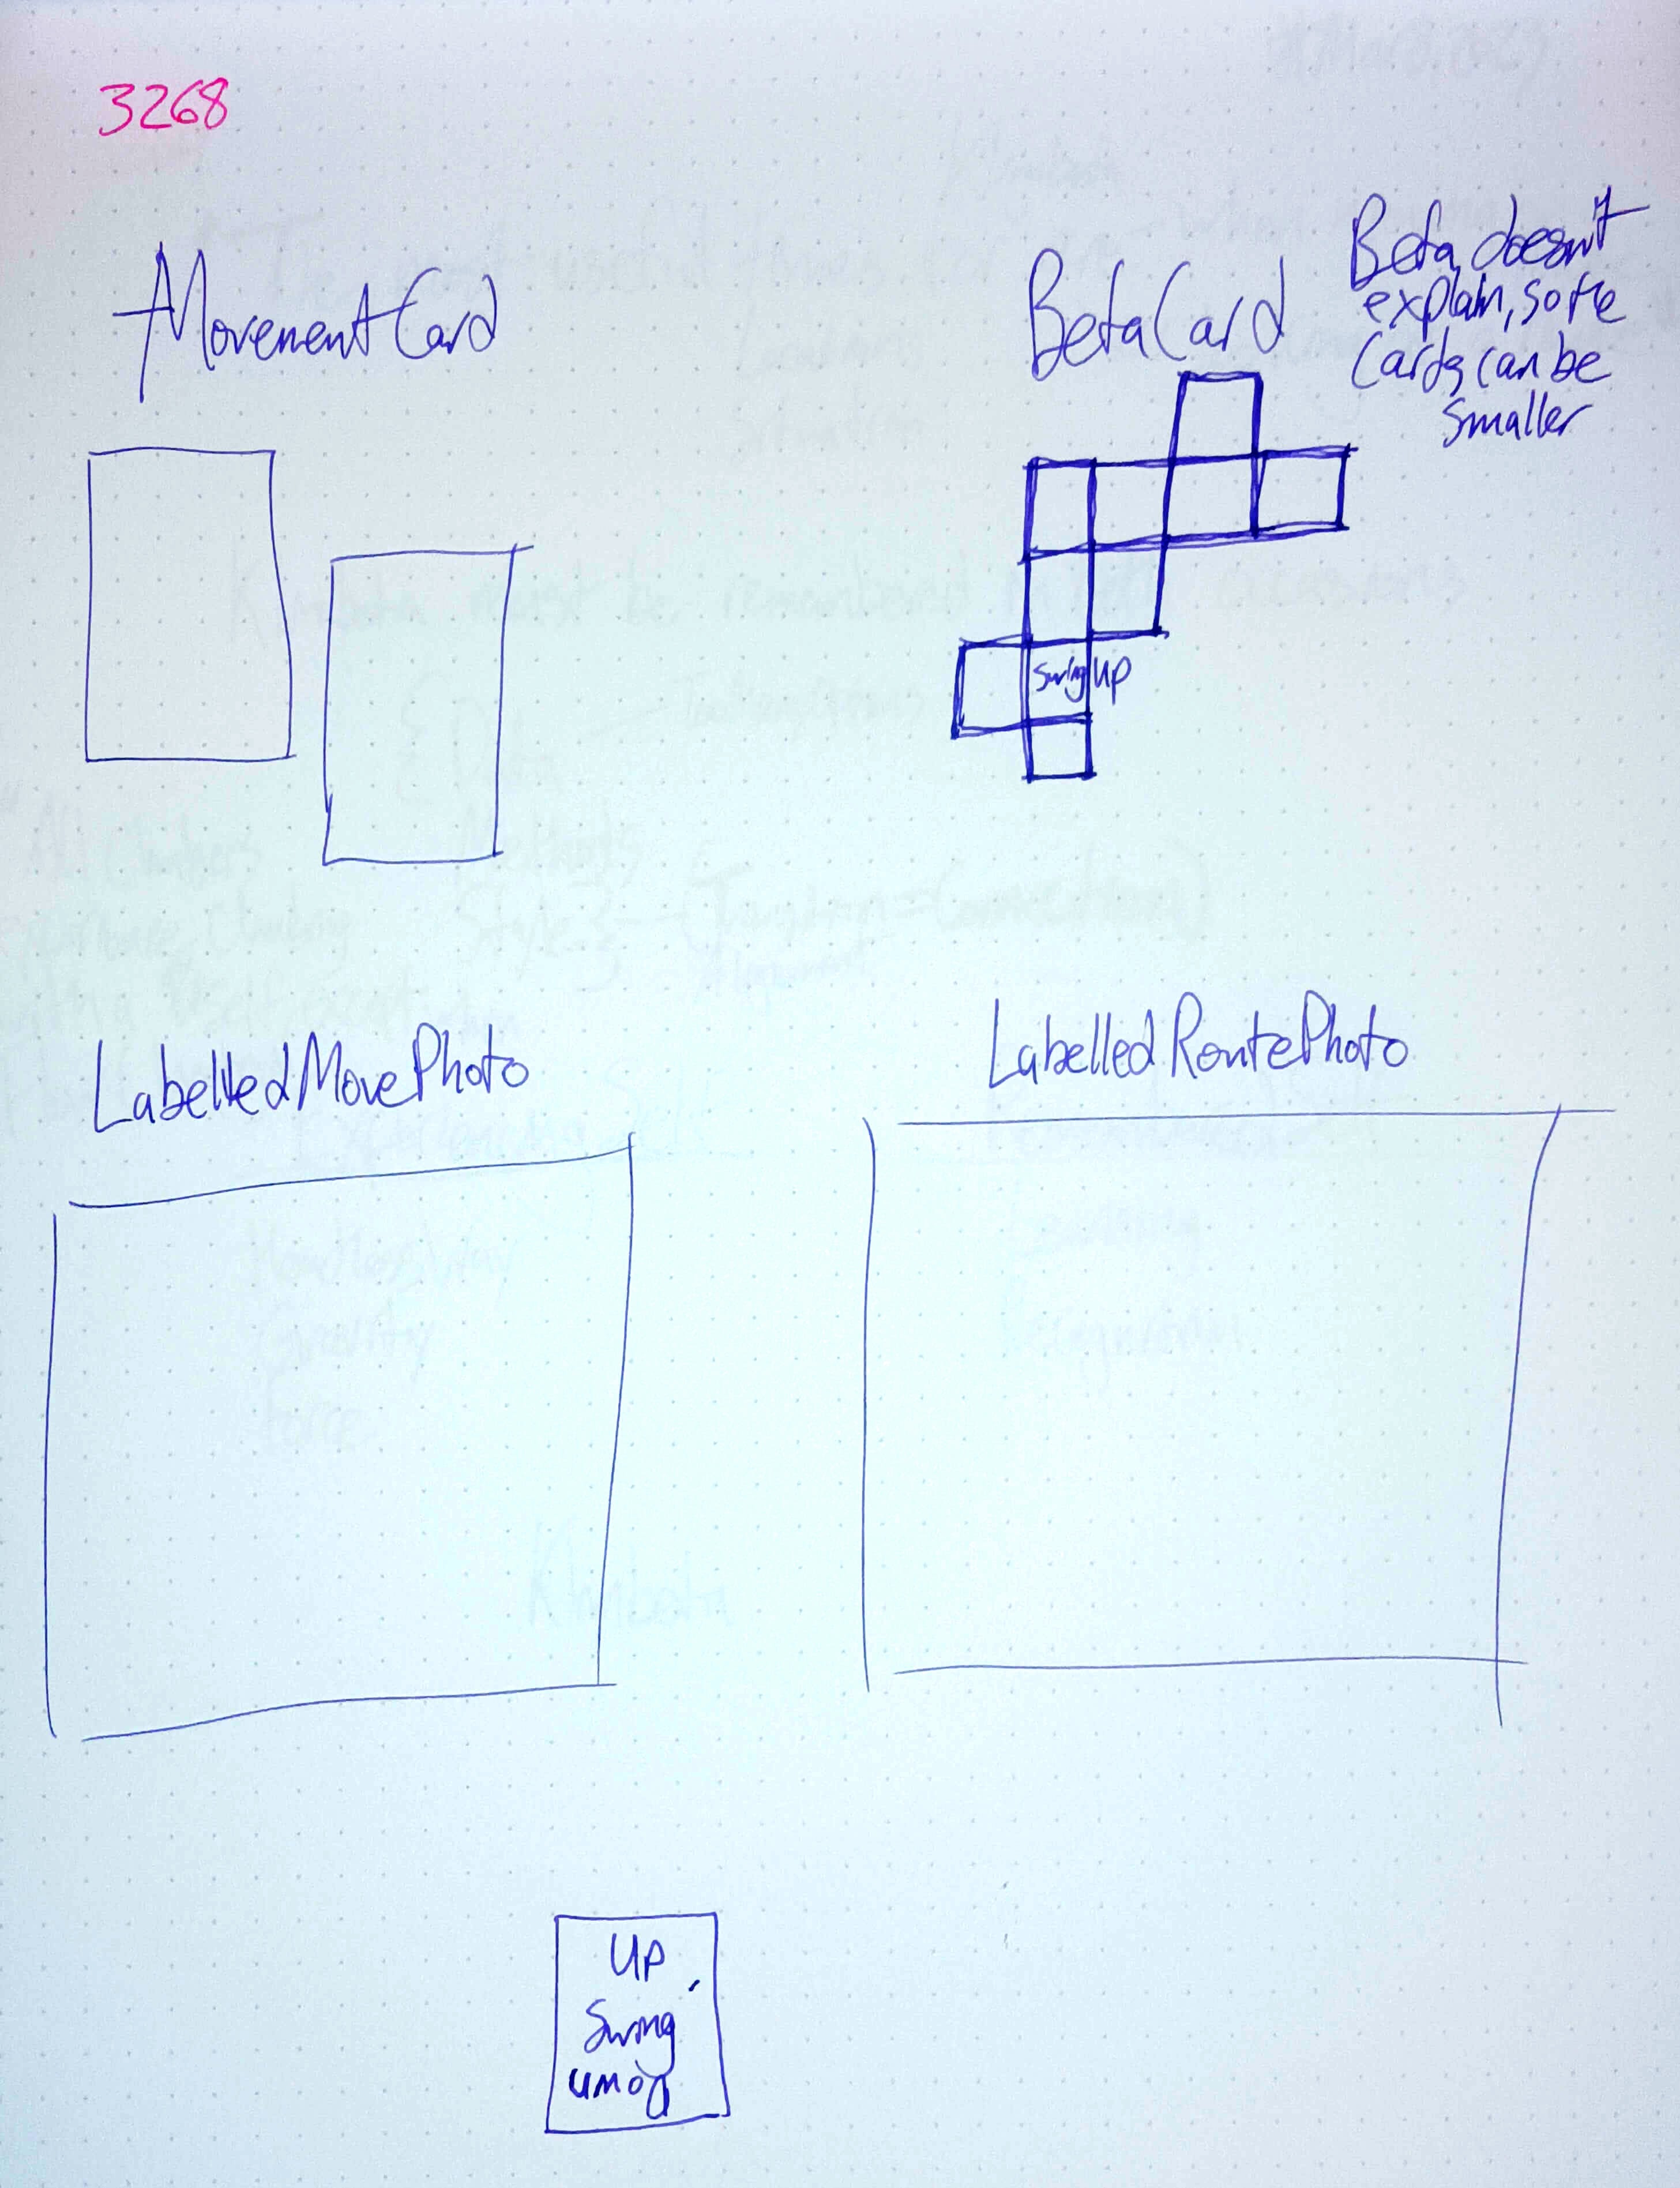 3268
MovementCard
BetaCard
Beta doesn't
explain, so the
Cards can be
smaller
Swing UP
LabelledMovePhoto
LabelledRoutePhoto
UP
Swing
Down